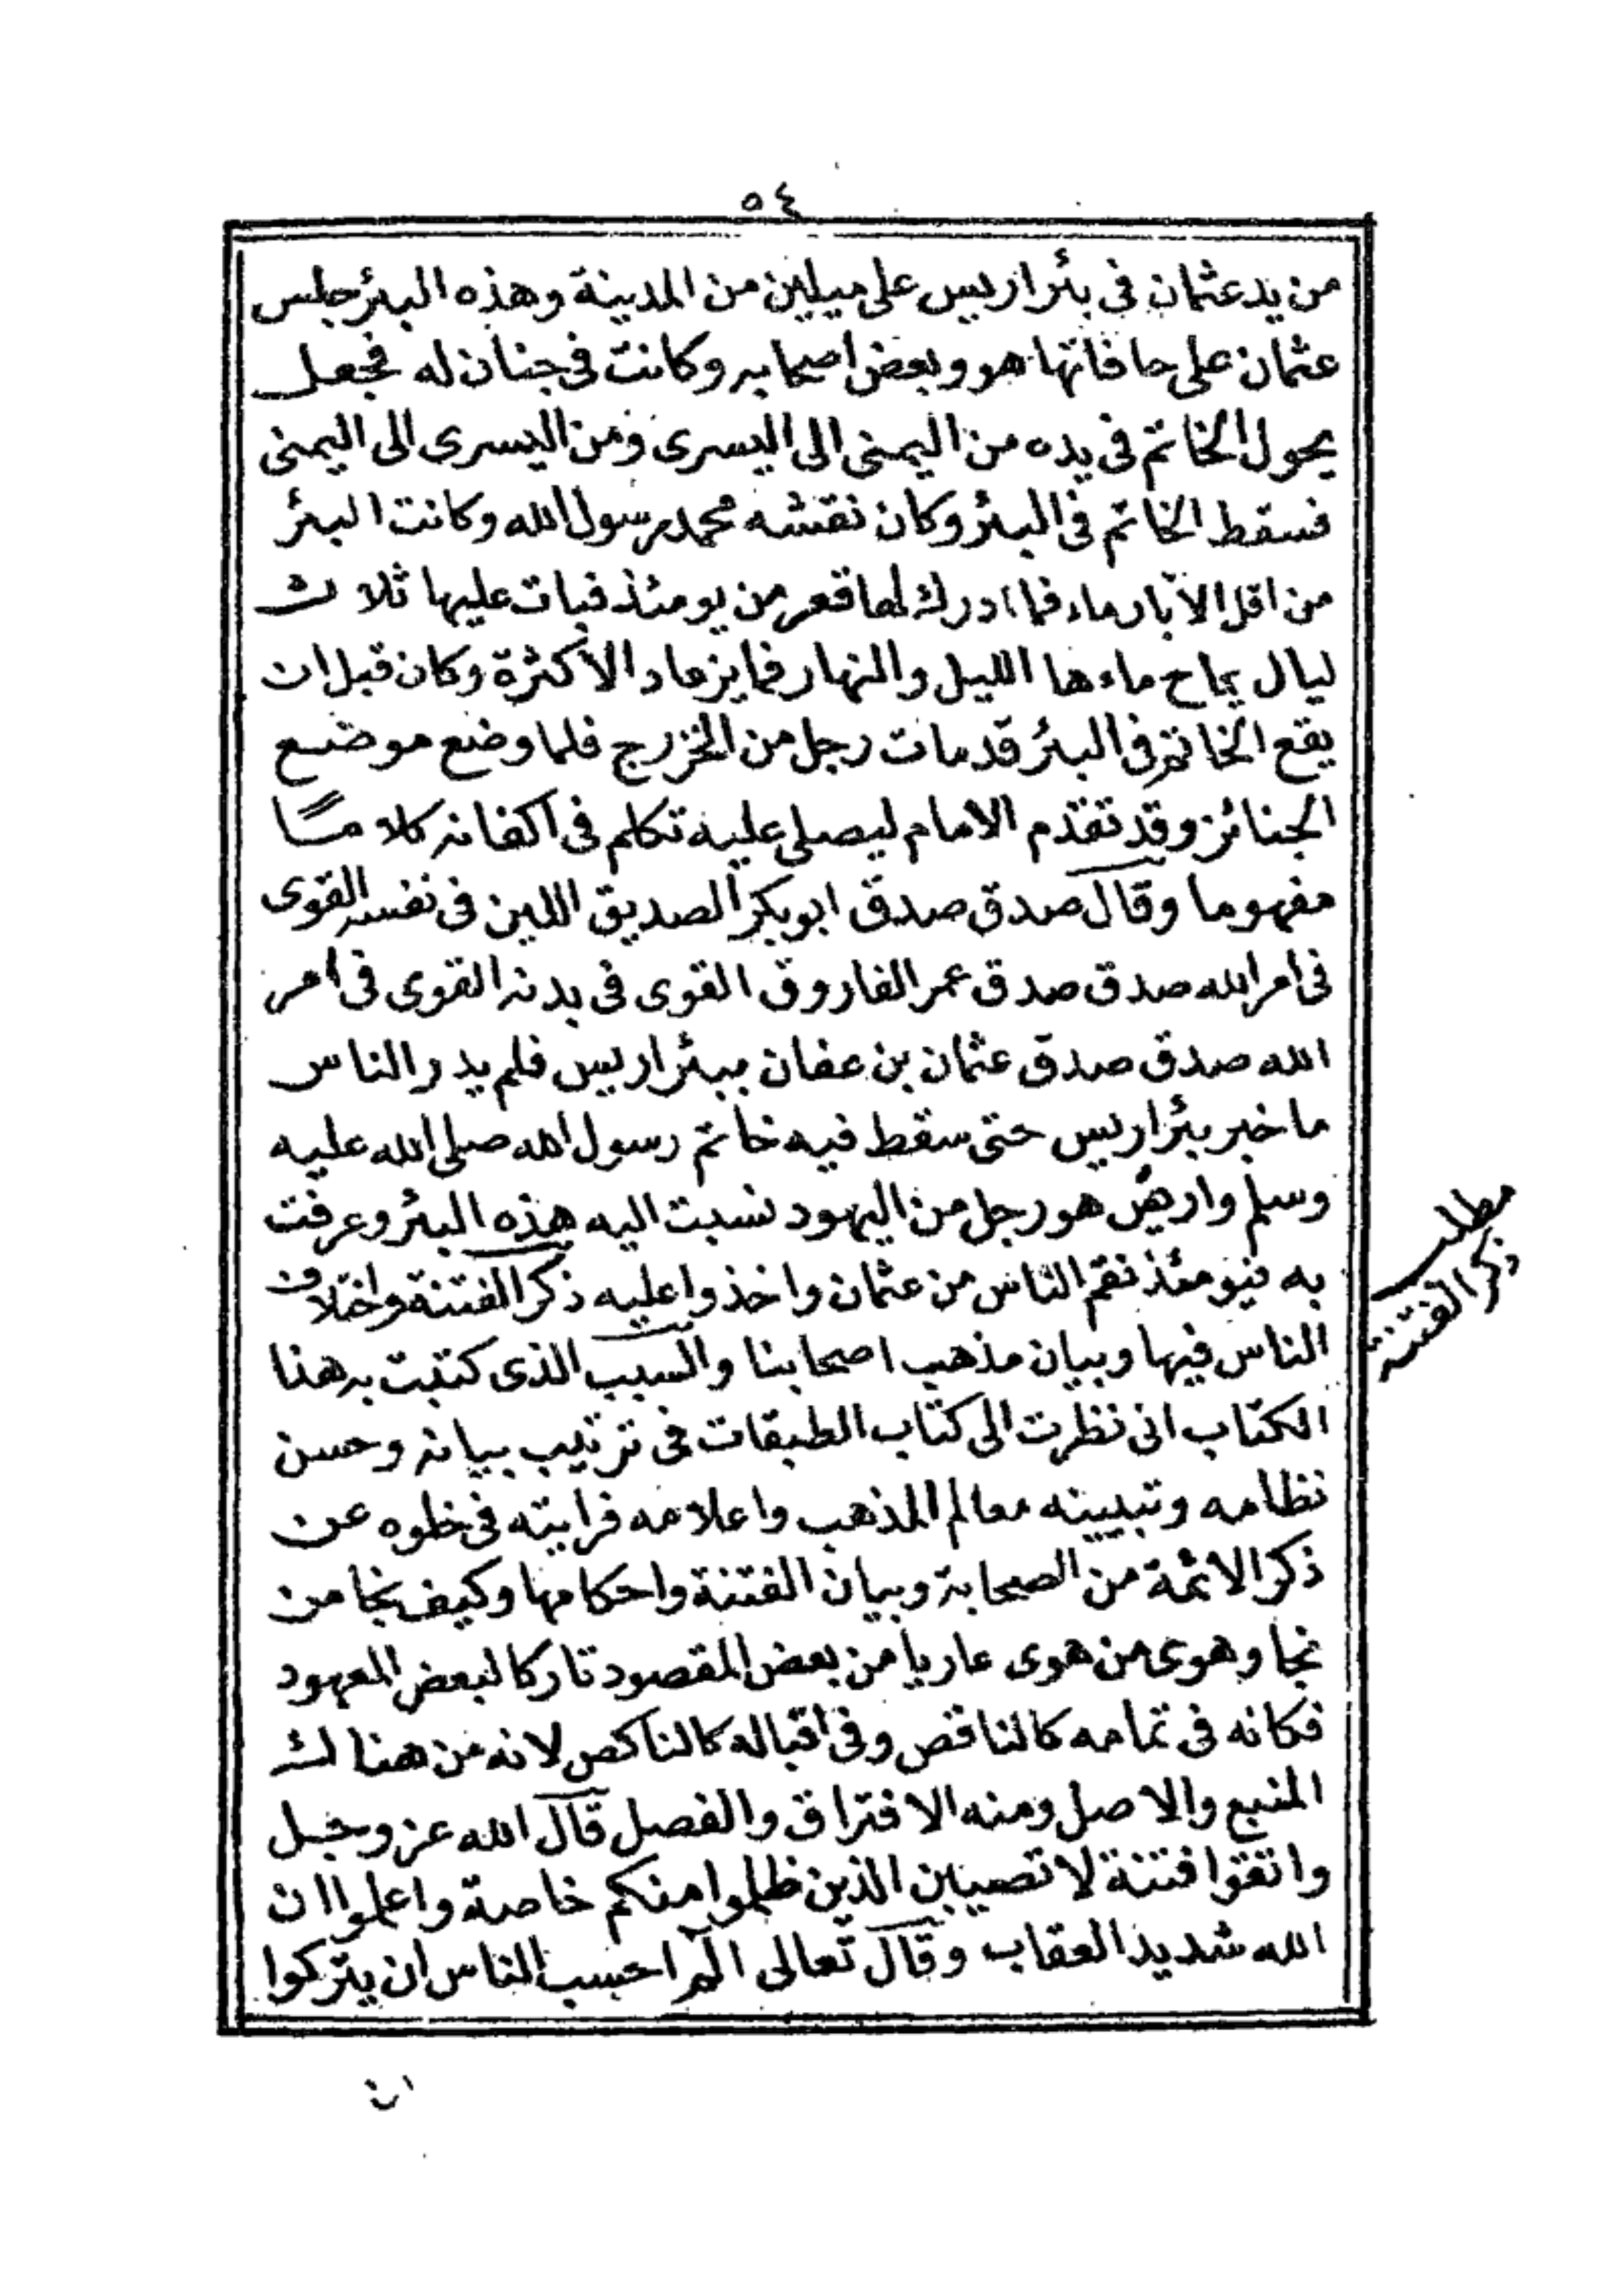 ٥٤
من يد عثمان فى بئر اريس على ميلين من المدينة وهذه البئر جلس
عثمان على حافاتها هو وبعض اصحابه وكانت فى جنان له فجعل
يحول الخاتم فى يده من اليمنى الى اليسرى ومن اليسرى الى اليمنى
فسقط الخاتم فى البئر وكان نقشه محمد رسول الله وكانت البئر
من اقل الابار ماء فما ادرك لها قعر من يومئذ فبات عليها ثلاث
ليال يماح ماءها الليل والنهار فما يزداد الا كثرة وكان قبل ان
يقع الخاتم فى البئر قد مات رجل من الخزرج فلما وضع موضع
الجنائز وقد تقدم الامام ليصلى عليه تكلم فى اكفانه كلاما
مفهوما وقال صدق صدق ابو بكر الصديق اللين فى نفسه القوى
فى امر الله صدق صدق عمر الفاروق القوى فى بدنه القوى فى امر
الله صدق صدق عثمان بن عفان ببئر اريس فلم يدر الناس
ما خبر بئر اريس حتى سقط فيه خاتم رسول الله صلى الله عليه
وسلم واريس هو رجل من اليهود نسبت اليه هذه البئر وعرفت
به فيومئذ نقم الناس من عثمان واخذوا عليه ذكر الفتنة واختلاف
الناس فيها وبيان مذهب اصحابنا والسبب الذى كتبت به هذا
الكتاب انى نظرت الى كتاب الطبقات فى ترتيب بيانه وحسن
نظامه وتبيينه معالم المذهب واعلامه فرايته فى خلوه عن
ذكر الائمة من الصحابة وبيان الفتنة واحكامها وكيف نجا من
نجا وهوى من هوى عاريا من بعض المقصود تاركا لبعض المعهود
فكانه فى تمامه كالناقص وفى اقباله كالناكص لانه من هنالك
المنبع والاصل ومنه الافتراق والفصل قال الله عز وجل
واتقوا فتنة لا تصيبن الذين ظلموا منكم خاصة واعلموا ان
الله شديد العقاب وقال تعالى الم احسب الناس ان يتركوا
مطلب
ذكر الفتنة
ان